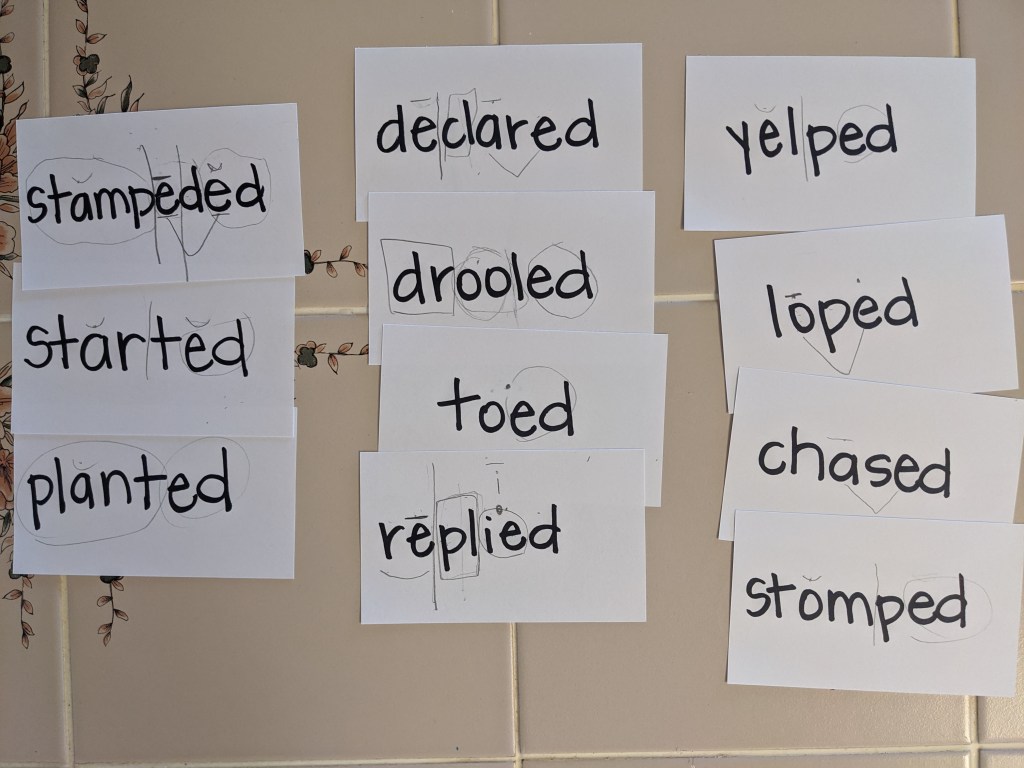 stampeded
started
planted
declared
drooled
toed
replied
yelped
loped
chased
stomped